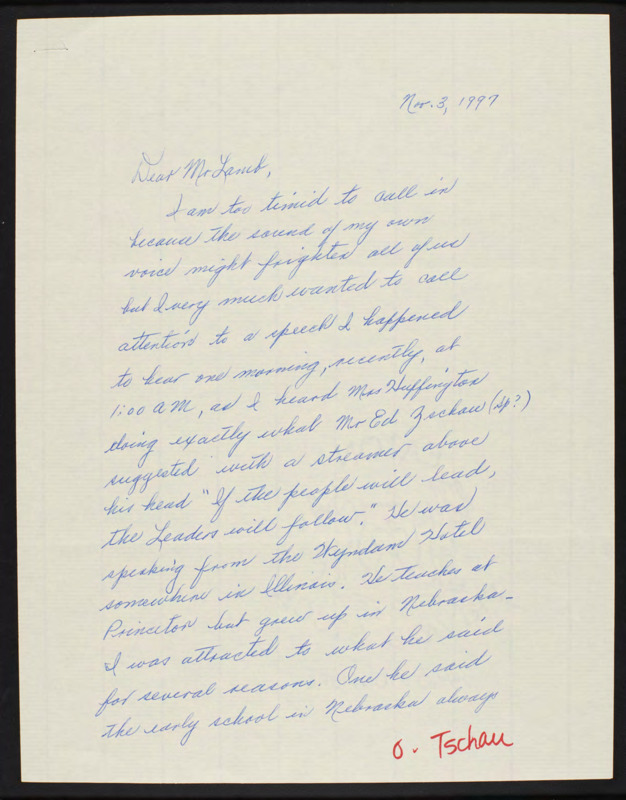 Nov. 3, 1997
Dear Mr Lamb,
I am too timid to call in
because the sound of my own
voice might frighten all of us
but I very much wanted to call
attention to a speech I happened
to hear one morning, recently, at
1:00 AM, as I heard Mrs Huffington
doing exactly what Mr Ed Zschau (sp?)
suggested with a streamer above
his head "If the people will lead,
the Leaders will follow." He was
speaking from the Wyndam Hotel
somewhere in Illinois. He teaches at
Princeton but grew up in Nebraska -
I was attracted to what he said
for several reasons. One he said
the early school in Nebraska always
O. Tschau